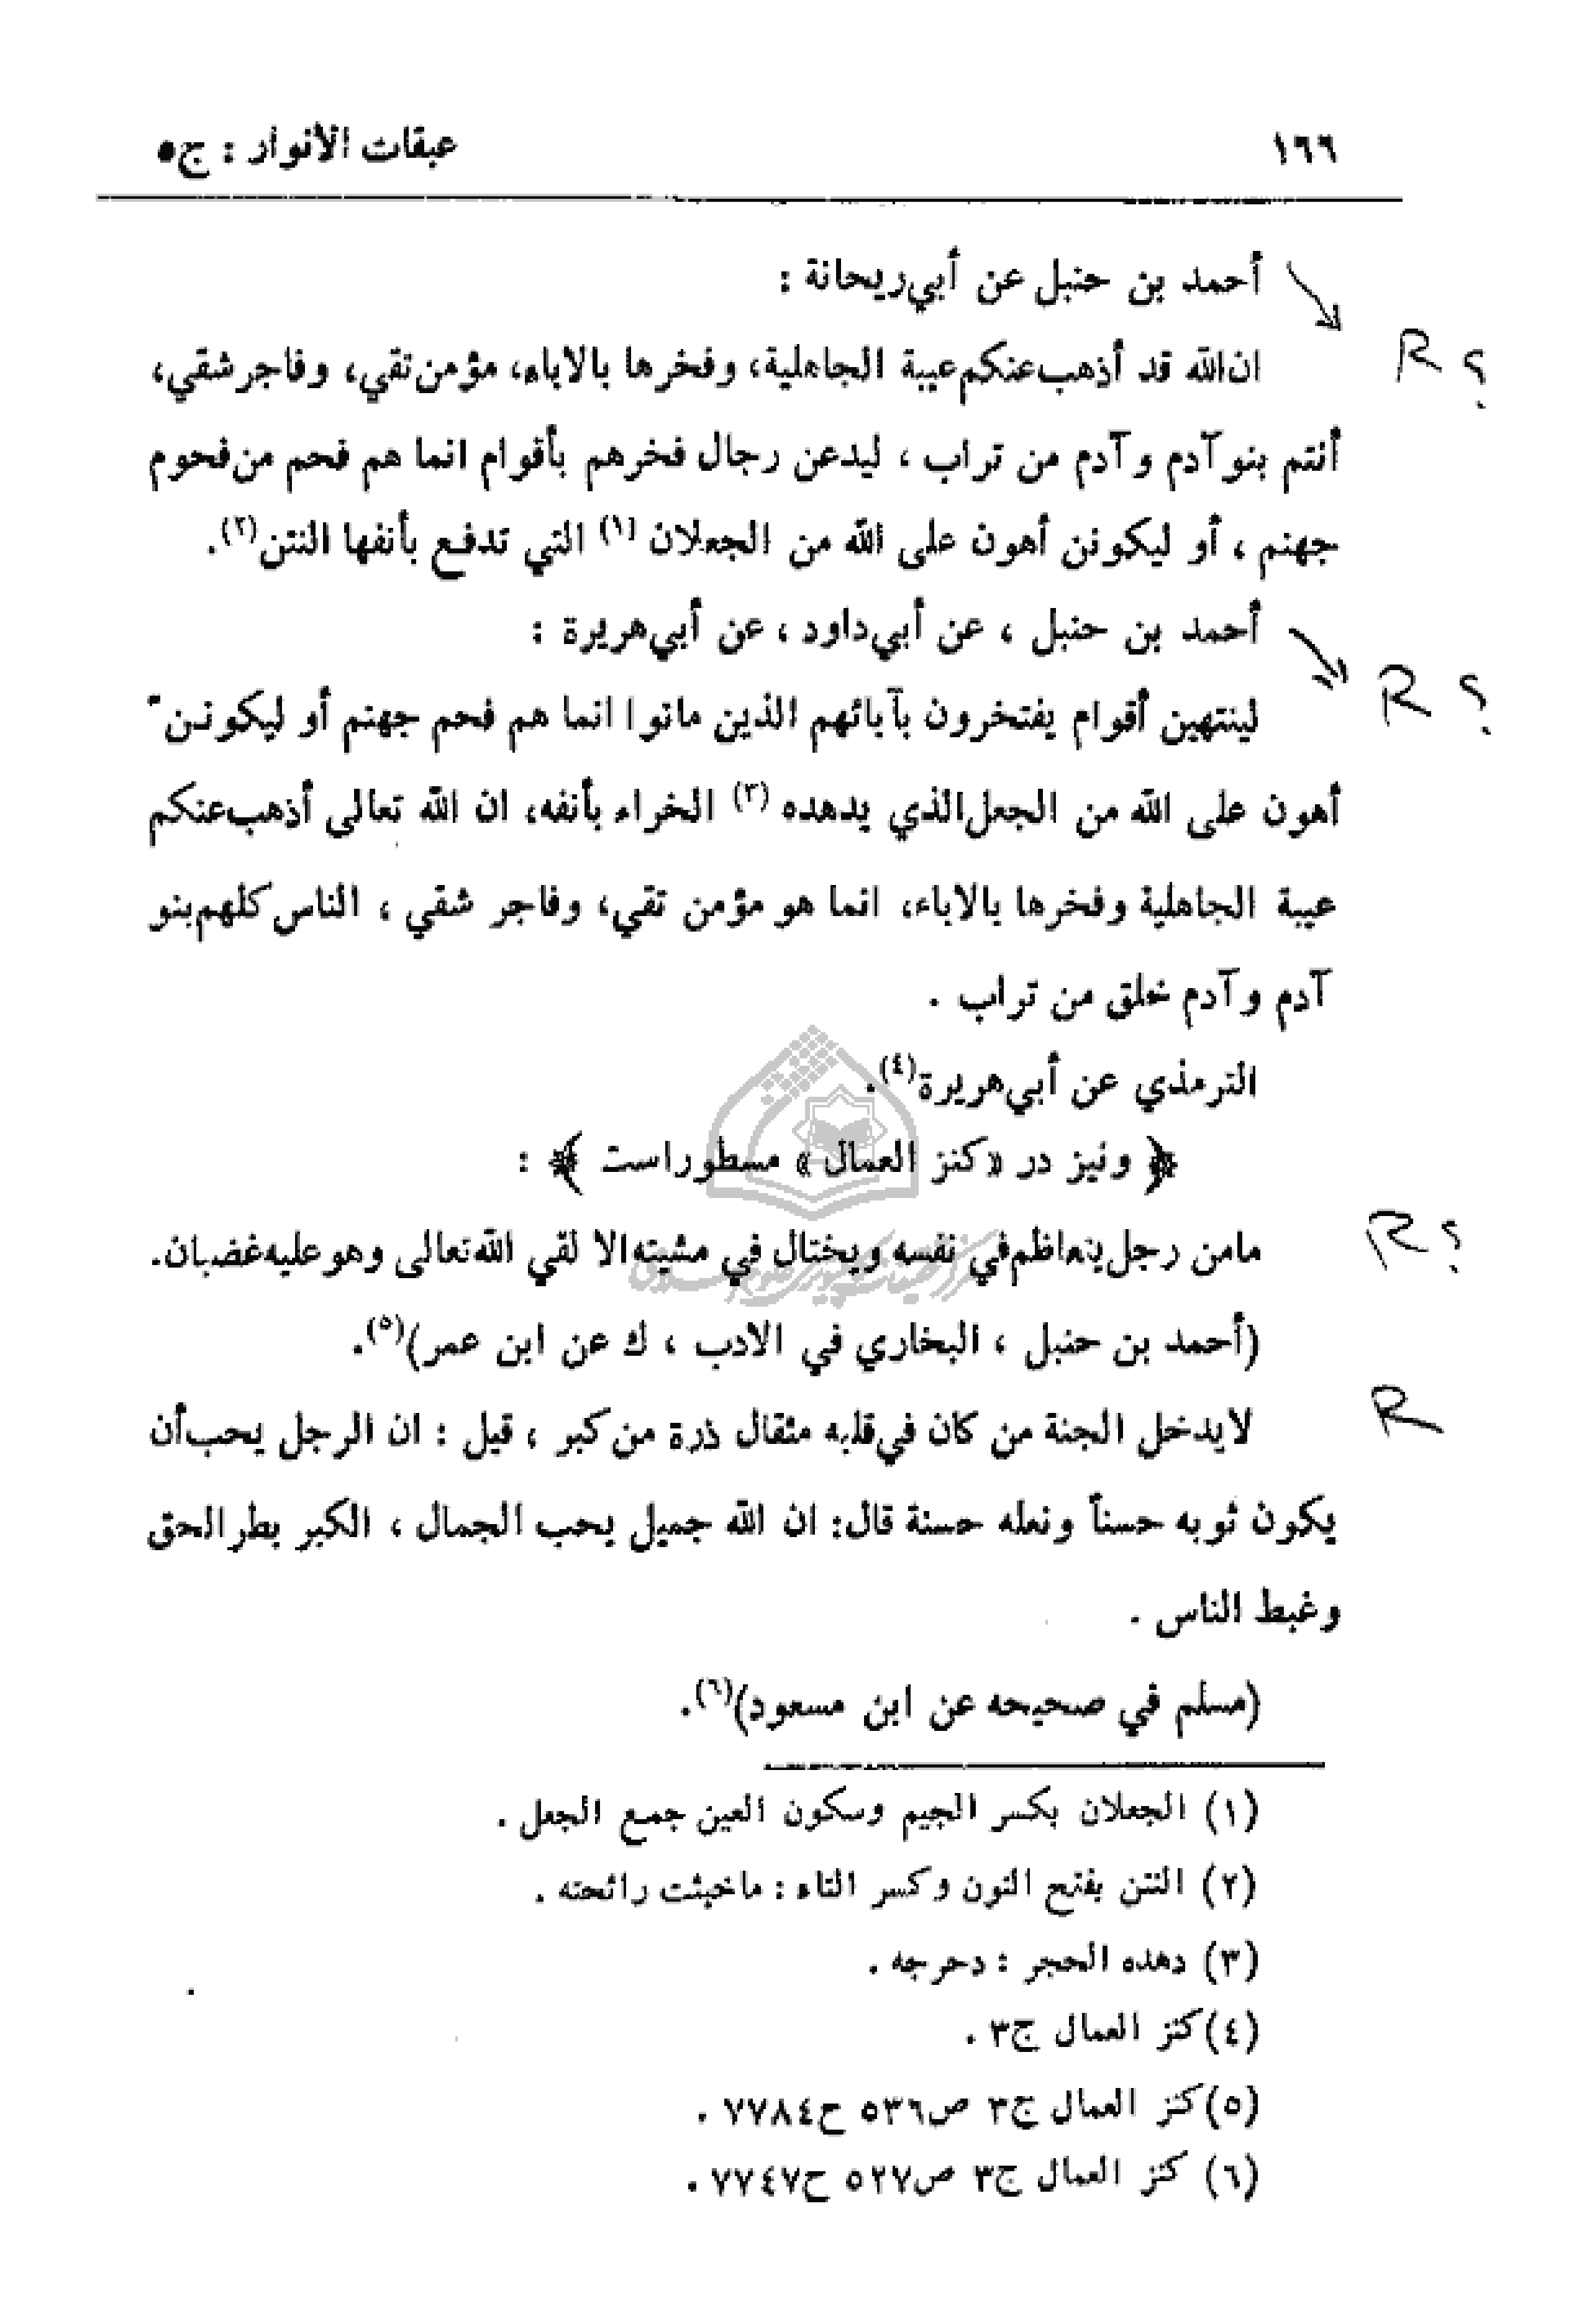 ١٦٦
عبقات الأنوار : ج٥
أحمد بن حنبل عن أبي‌ريحانة :
ان‌الله قد أذهب‌عنكم‌عيبة الجاهلية، وفخرها بالاباء، مؤمن‌تقي، وفاجر‌شقي،
R ؟
أنتم بنو آدم وآدم من تراب ، ليدعن رجال فخرهم بأقوام انما هم فحم من‌فحوم
جهنم ، أو ليكونن أهون على الله من الجعلان (١) التي تدفع بأنفها النتن(٢).
أحمد بن حنبل ، عن أبي‌داود ، عن أبي‌هريرة :
لينتهين أقوام يفتخرون بآبائهم الذين ماتوا انما هم فحم جهنم أو ليكونـنّ
R ؟
أهون على الله من الجعل‌الذي يدهده (٣) الخراء بأنفه، ان الله تعالى أذهب‌عنكم
عيبة الجاهلية وفخرها بالاباء، انما هو مؤمن تقي، وفاجر شقي ، الناس كلهم‌بنو
آدم وآدم خلق من تراب .
الترمذي عن أبي‌هريرة(٤).
﴿ ونيز در «كنز العمال» مسطوراست ﴾ :
مامن رجل‌يتعاظم‌في نفسه ويختال في مشيته‌الا لقي الله‌تعالى وهوعليه‌غضبان.
R ؟
(أحمد بن حنبل ، البخاري في الادب ، ك عن ابن عمر)(٥).
لايدخل الجنة من كان في‌قلبه مثقال ذرة من‌كبر ، قيل : ان الرجل يحب‌أن
R
يكون ثوبه حسناً ونعله حسنة قال: ان الله جميل يحب الجمال ، الكبر بطرالحق
وغبط الناس .
(مسلم في صحيحه عن ابن مسعود)(٦).
(١) الجعلان بكسر الجيم وسكون العين جمع الجعل .
(٢) النتن بفتح النون وكسر التاء : ماخبثت رائحته .
(٣) دهده الحجر : دحرجه .
(٤) كنز العمال ج٣ .
(٥) كنز العمال ج٣ ص٥٣٦ ح٧٧٨٤ .
(٦) كنز العمال ج٣ ص٥٢٧ ح٧٧٤٧ .